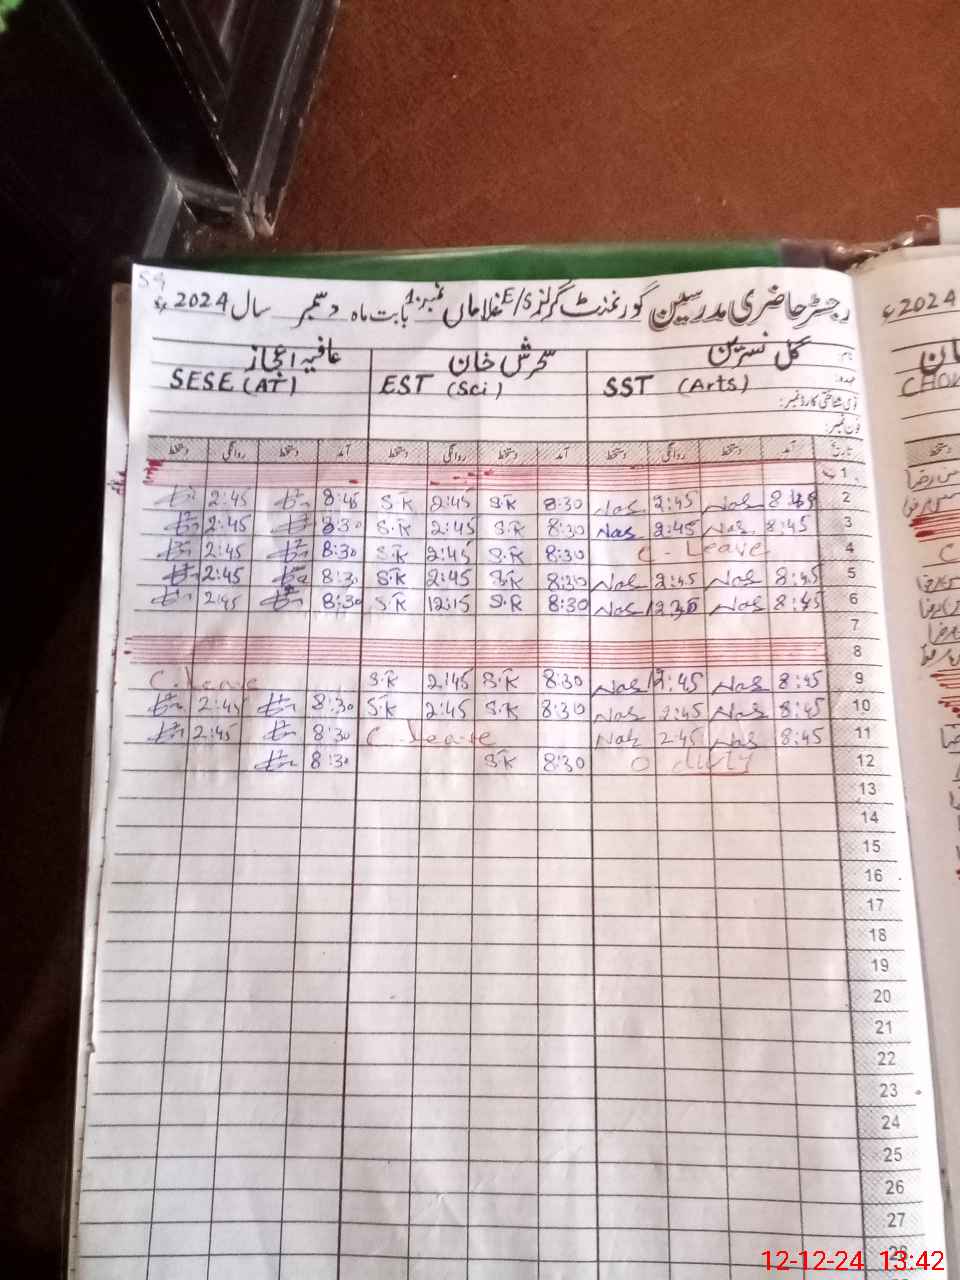 59
رجسٹر حاضری مدرسین گورنمنٹ گرلز E/S غلاماں نمبر 1 بابت ماہ دسمبر سال 2024ء
نام: گل نسرین سحرش خان عافیہ اعجاز
عہدہ: SST (Arts) EST (Sci) SESE (AT)
قومی شناختی کارڈ نمبر:
فون نمبر:
تاریخ آمد دستخط روانگی دستخط آمد دستخط روانگی دستخط آمد دستخط روانگی دستخط
1
2:45 8:45 S.K 2:45 S.K 8:30 Nas 2:45 Nas 8:45 2
2:45 8:30 S.K 2:45 S.K 8:30 Nas 2:45 Nas 8:45 3
2:45 8:30 S.K 2:45 S.K 8:30 C - Leave 4
2:45 8:30 S.K 2:45 S.K 8:30 Nas 2:45 Nas 8:45 5
2:45 8:30 S.K 12:15 S.K 8:30 Nas 12:30 Nas 8:45 6
7
8
C. leave S.K 2:45 S.K 8:30 Nas 2:45 Nas 8:45 9
2:45 8:30 S.K 2:45 S.K 8:30 Nas 2:45 Nas 8:45 10
2:45 8:30 C leave Nas 2:45 Nas 8:45 11
8:30 S.K 8:30 O duty 12
13
14
15
16
17
18
19
20
21
22
23
24
25
26
27
28
2024ء
خان
CHOW
12-12-24 13:42